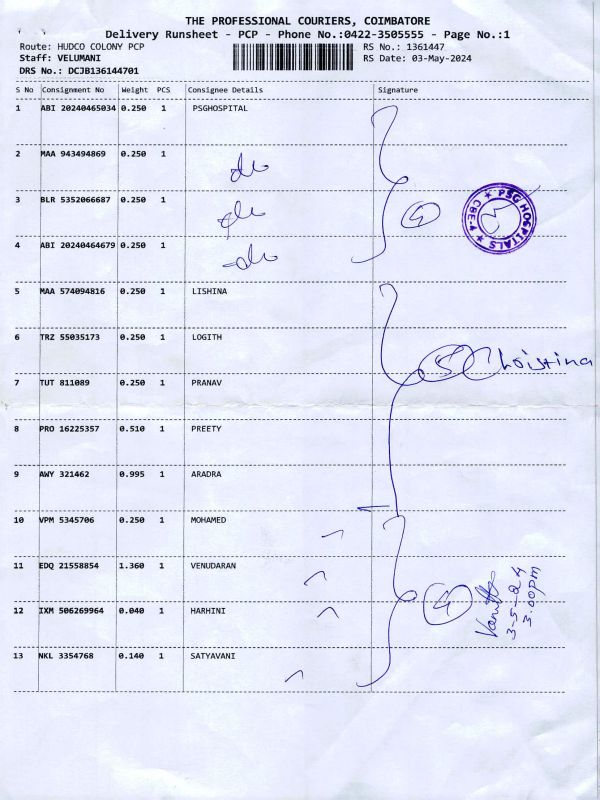 THE PROFESSIONAL COURIERS, COIMBATORE
Delivery Runsheet - PCP - Phone No.:0422-3505555 - Page No.:1
Route: HUDCO COLONY PCP RS No.: 1361447
Staff: VELUMANI RS Date: 03-May-2024
DRS No.: DCJB136144701
S No Consignment No Weight PCS Consignee Details Signature
1 ABI 20240465034 0.250 1 PSGHOSPITAL
2 MAA 943494869 0.250 1 do
3 BLR 5352066687 0.250 1 do 4 PSG HOSPITALS ★ CBE-4 ★
4 ABI 20240464679 0.250 1 do
5 MAA 574094816 0.250 1 LISHINA
6 TRZ 55035173 0.250 1 LOGITH
5 Christina
7 TUT 811089 0.250 1 PRANAV
8 PRO 16225357 0.510 1 PREETY
9 AWY 321462 0.995 1 ARADRA
10 VPM 5345706 0.250 1 MOHAMED
11 EDQ 21558854 1.360 1 VENUDARAN
12 IXM 506269964 0.040 1 HARHINI 4
3-5-24
3.00pm
13 NKL 3354768 0.140 1 SATYAVANI